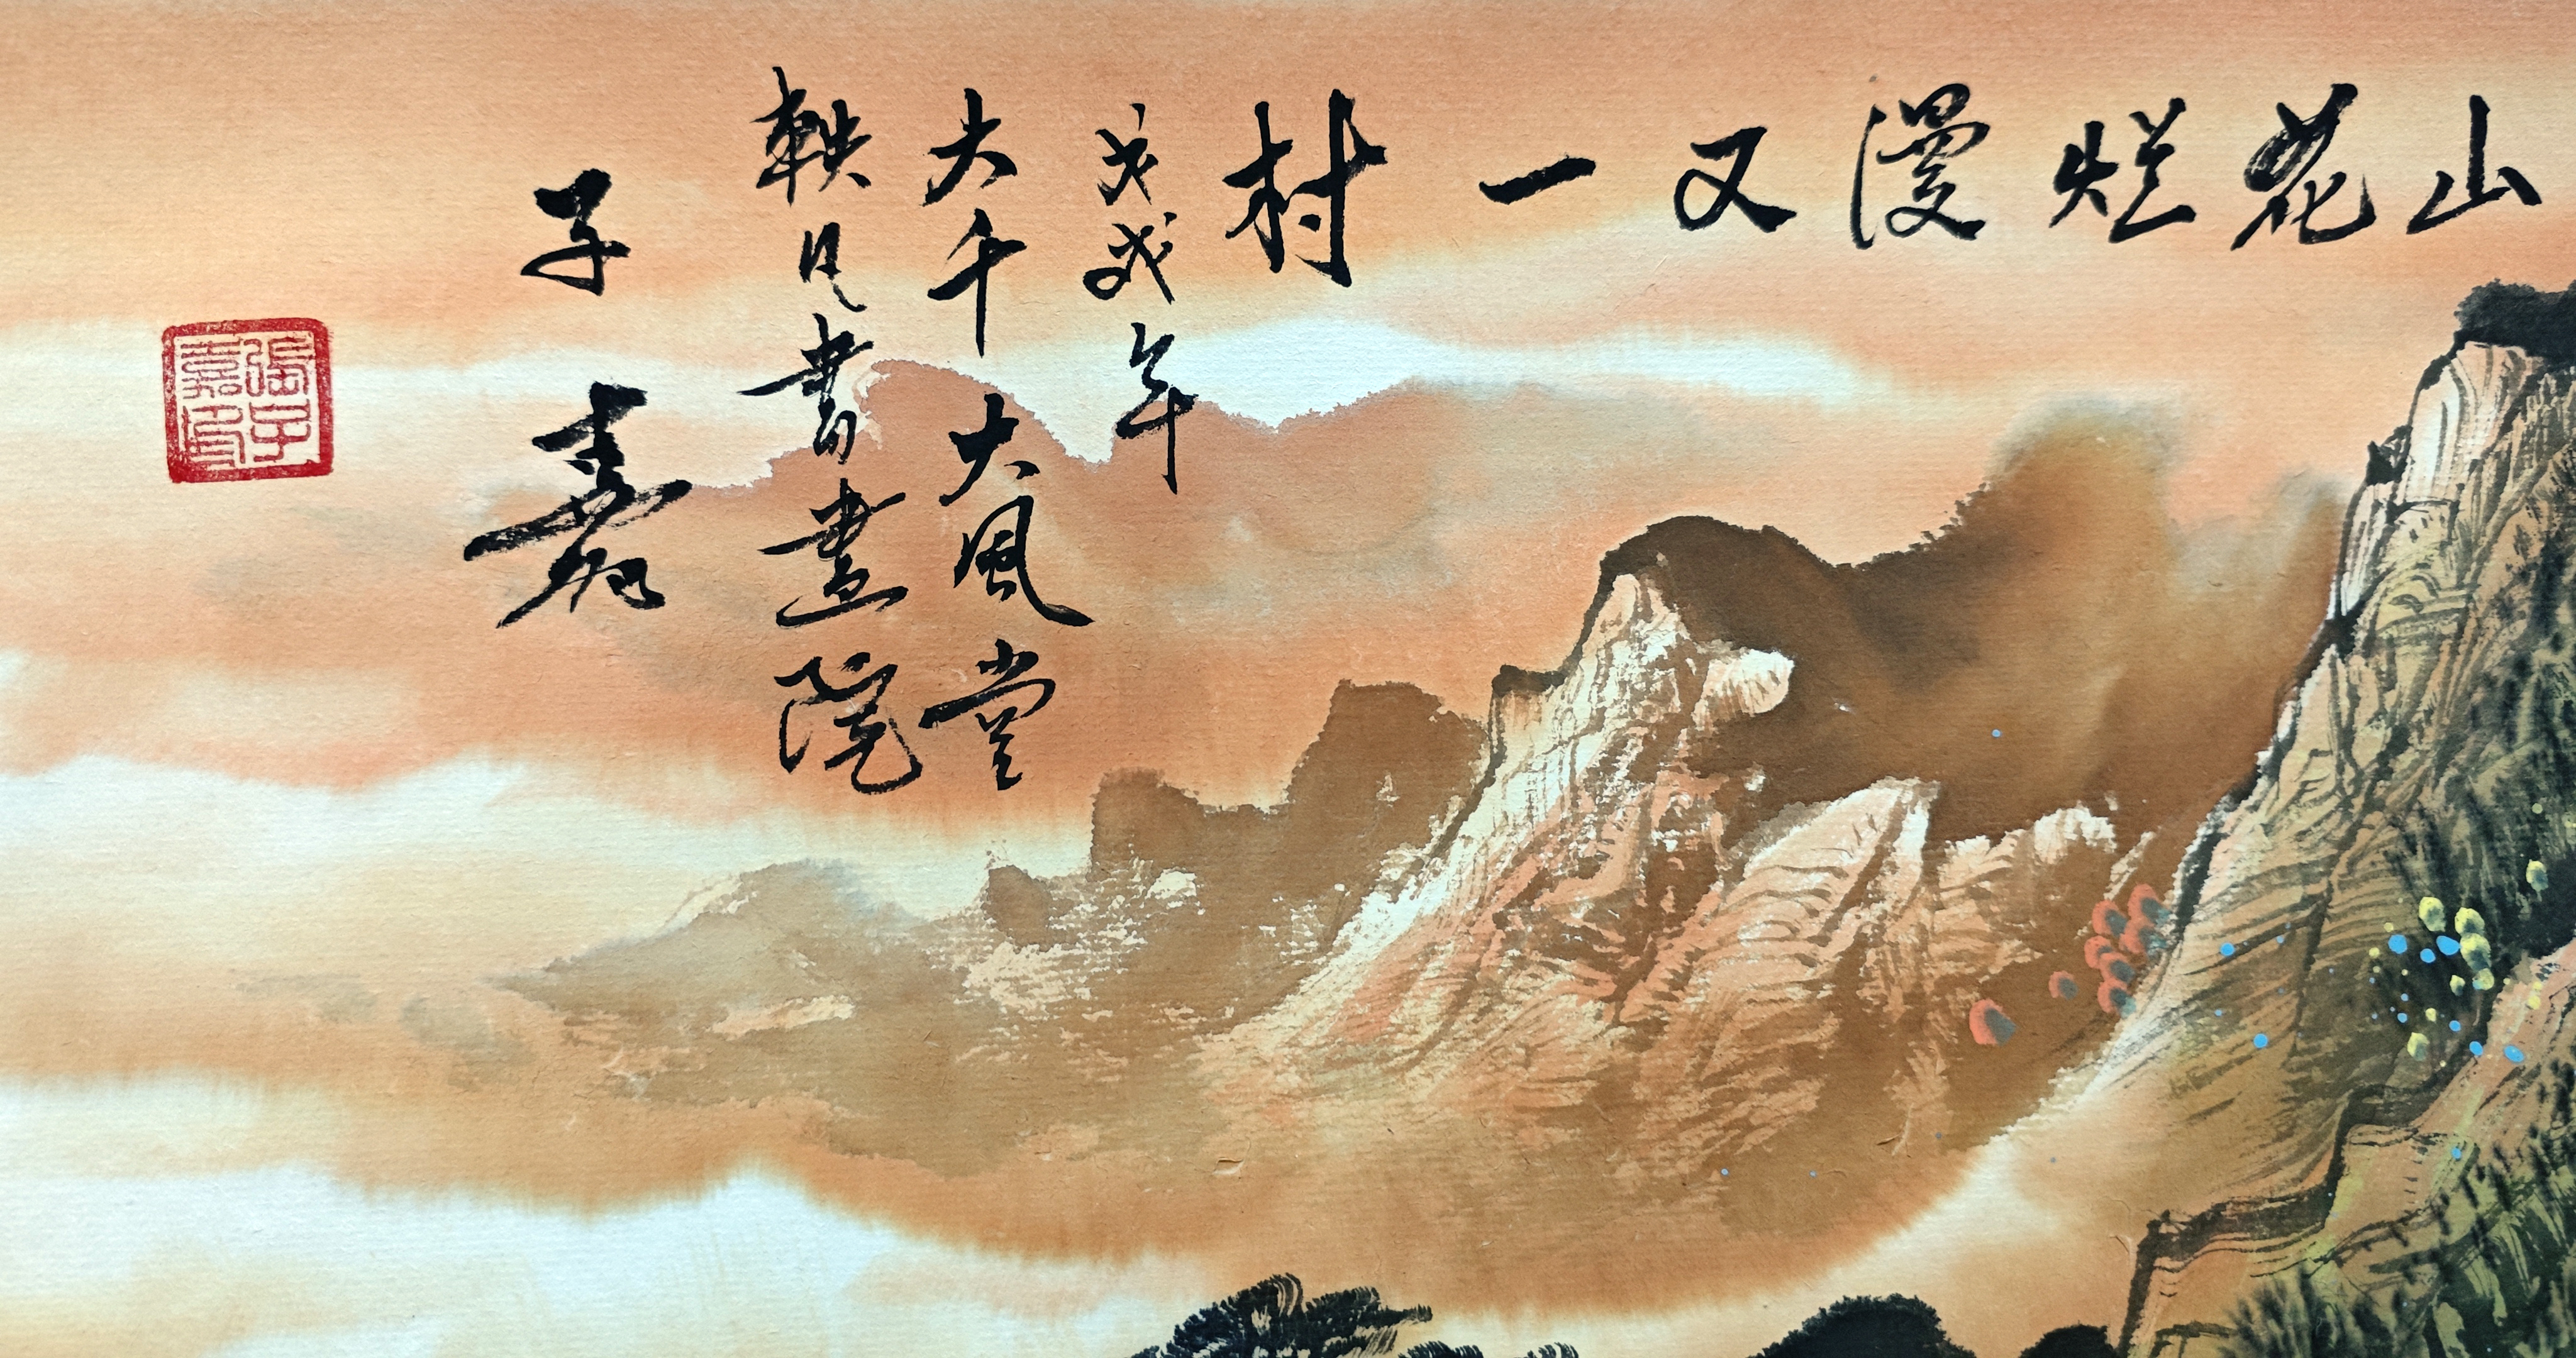 山花烂漫又一村
戊戌年
大千 大風堂
軼凡書畫院
子嘉
張子嘉印